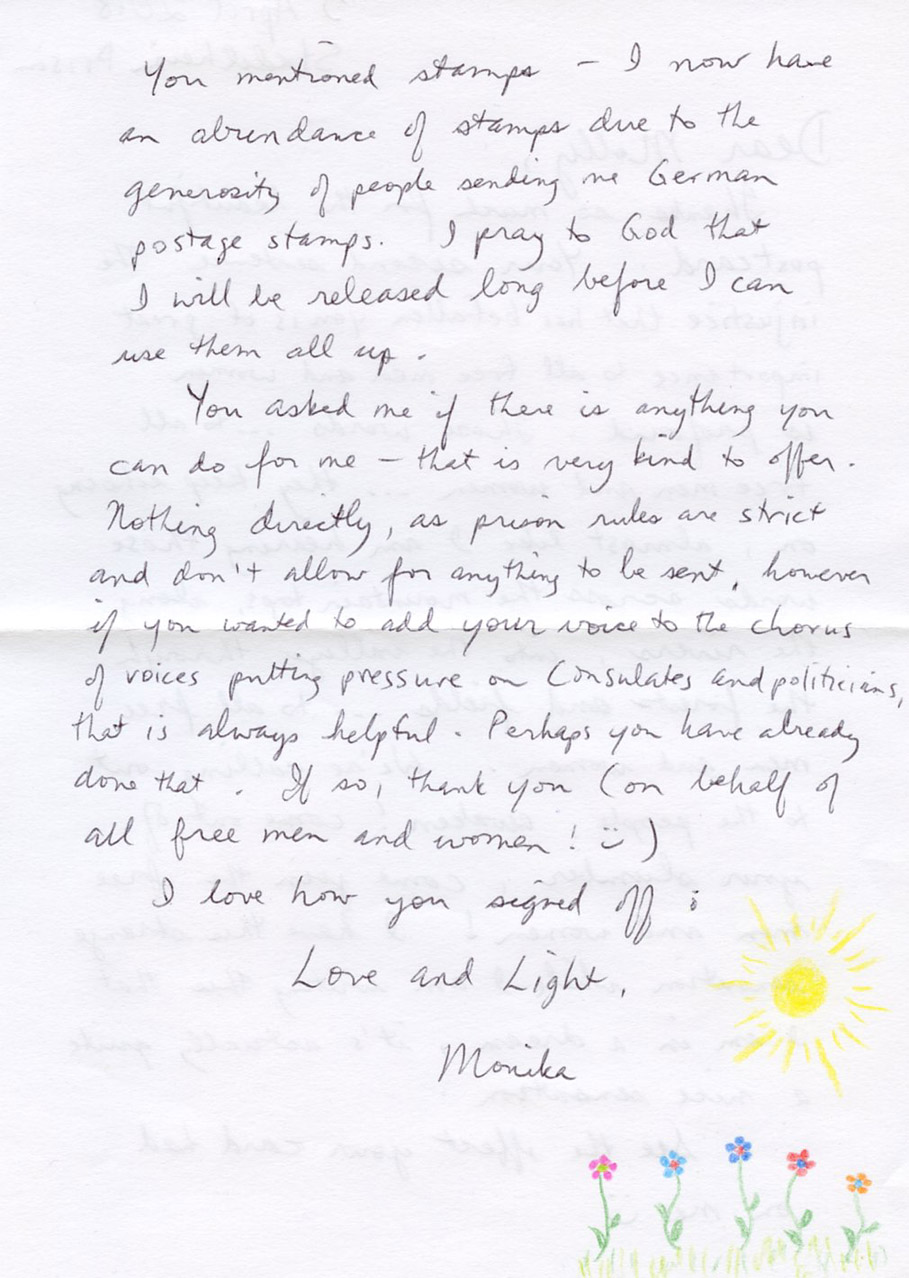 You mentioned stamps – I now have
an abundance of stamps due to the
generosity of people sending me German
postage stamps. I pray to God that
I will be released long before I can
use them all up.
You asked me if there is anything you
can do for me – that is very kind to offer.
Nothing directly, as prison rules are strict
and don't allow for anything to be sent, however
if you wanted to add your voice to the chorus
of voices putting pressure on Consulates and politicians,
that is always helpful. Perhaps you have already
done that. If so, thank you (on behalf of
all free men and women! :-)
I love how you signed off :
Love and Light,
Monika